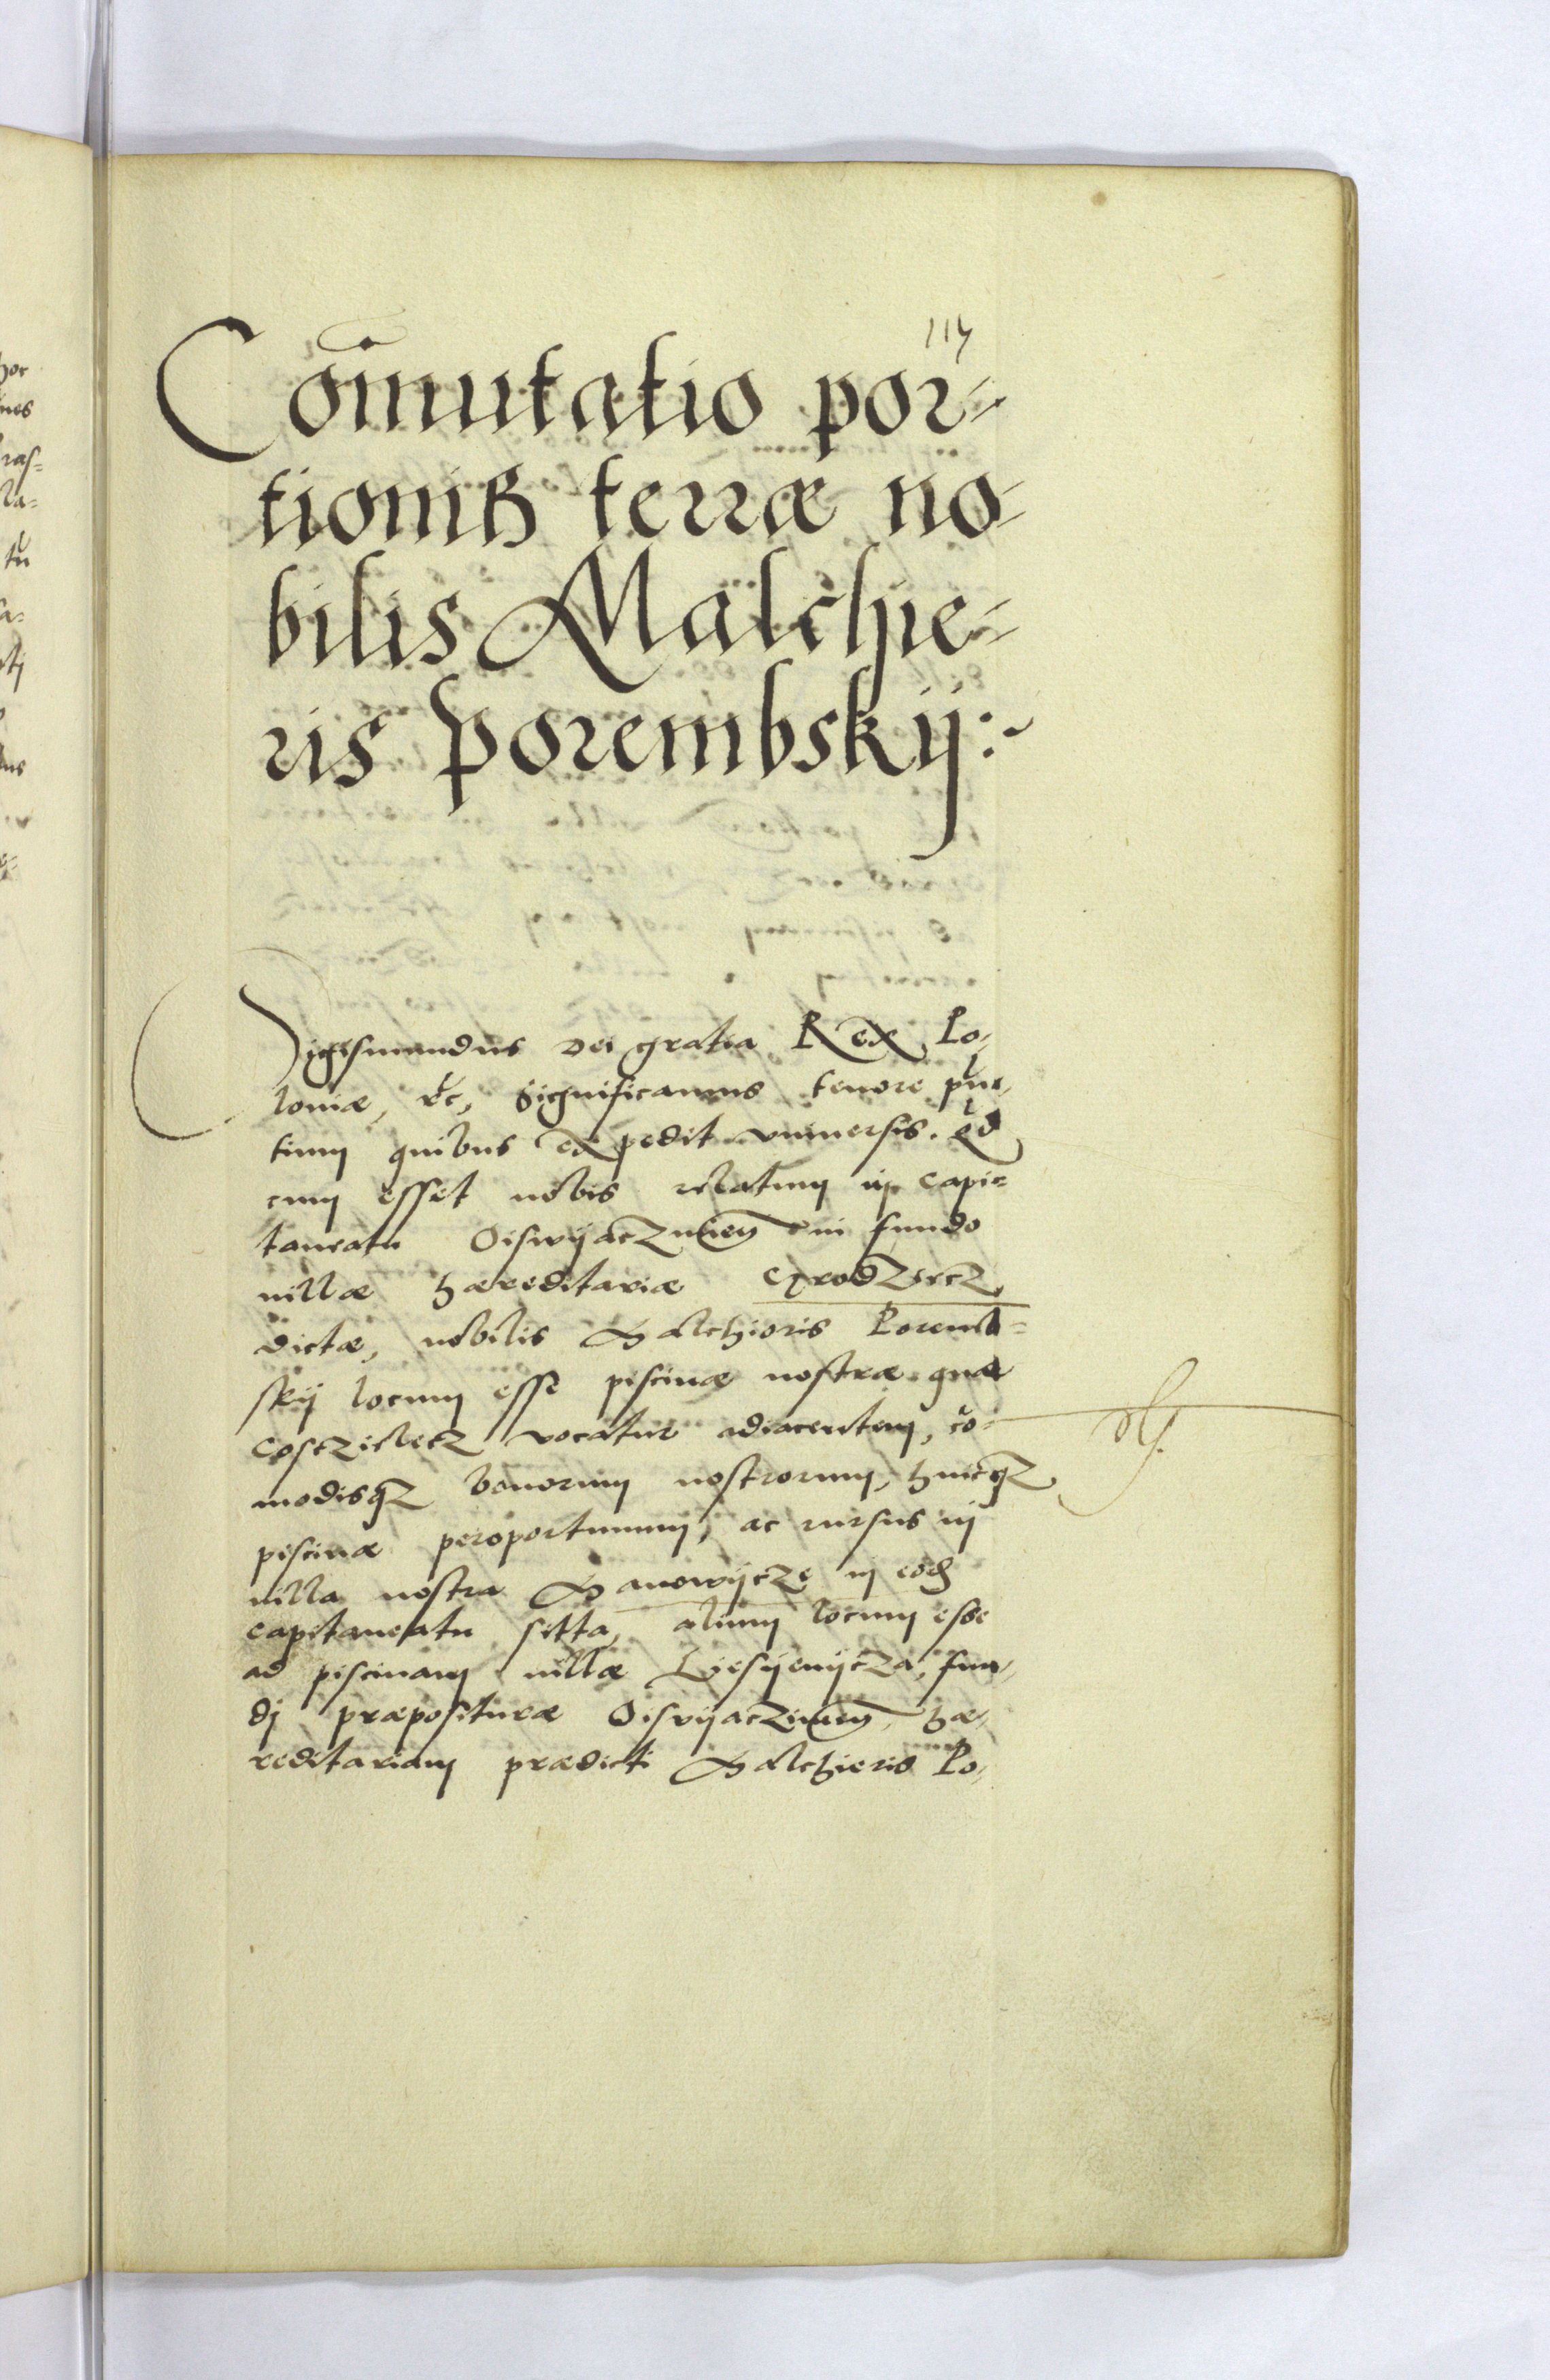 114
Com̄utatio por-
tionis terræ no-
bilis Malchie-
ris Porembskij:~
Sigismundus Dei gratia Rex Po-
loniæ, &c, Significamus tenore pn̄-
tium quibus expedit vniuersis. Qd
cum esset nobis relatum in capi-
taneatu Oiswijaczimen in fundo
uillæ hæreditariæ Grodzecz
dictæ, nobilis Malchioris Poremb-
skij locum esse piscinæ nostræ quæ
Cosczielecz vocatur adiacentem, co-
modisqz bonorum nostrorum, huicqz
piscinæ peroportunum, ac rursus in
uilla nostra Manowijcze in eod
capitaneatu sitta, alium locum esse
ad piscinam uillæ Liesijenijcza, fun-
di præposituræ Oiswijaczimen, hæ-
reditariam prædicti Malchieris Po-